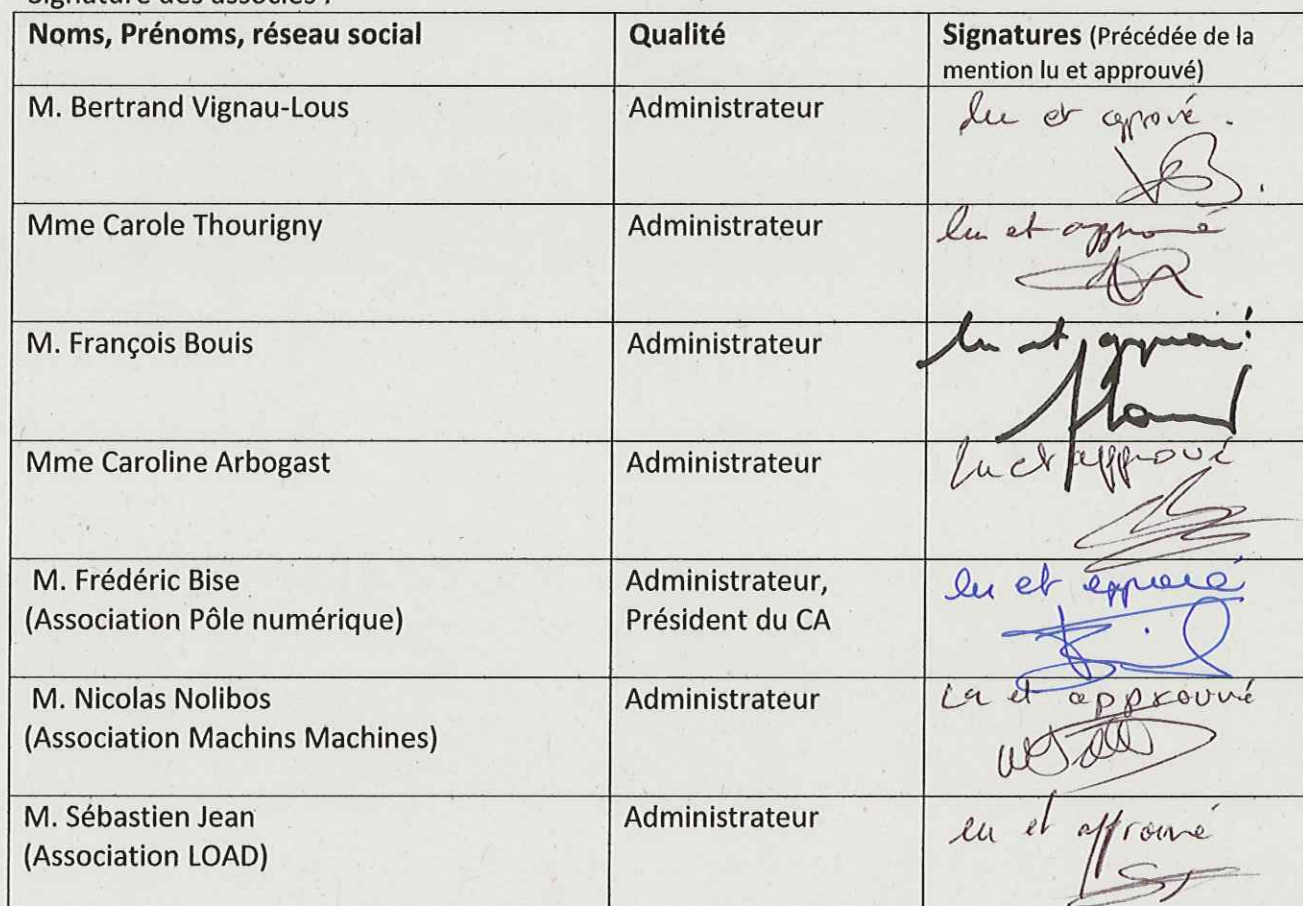 Signature des associés :
Noms, Prénoms, réseau social
Qualité
Signatures (Précédée de la
mention lu et approuvé)
M. Bertrand Vignau-Lous
Administrateur
lu et aprové.
Mme Carole Thourigny
Administrateur
lu et approuvé
M. François Bouis
Administrateur
lu et approuvé
Mme Caroline Arbogast
Administrateur
lu et approuvé
M. Frédéric Bise
(Association Pôle numérique)
Administrateur,
Président du CA
lu et approuvé
M. Nicolas Nolibos
(Association Machins Machines)
Administrateur
Lu et approuvé
M. Sébastien Jean
(Association LOAD)
Administrateur
lu et approuvé